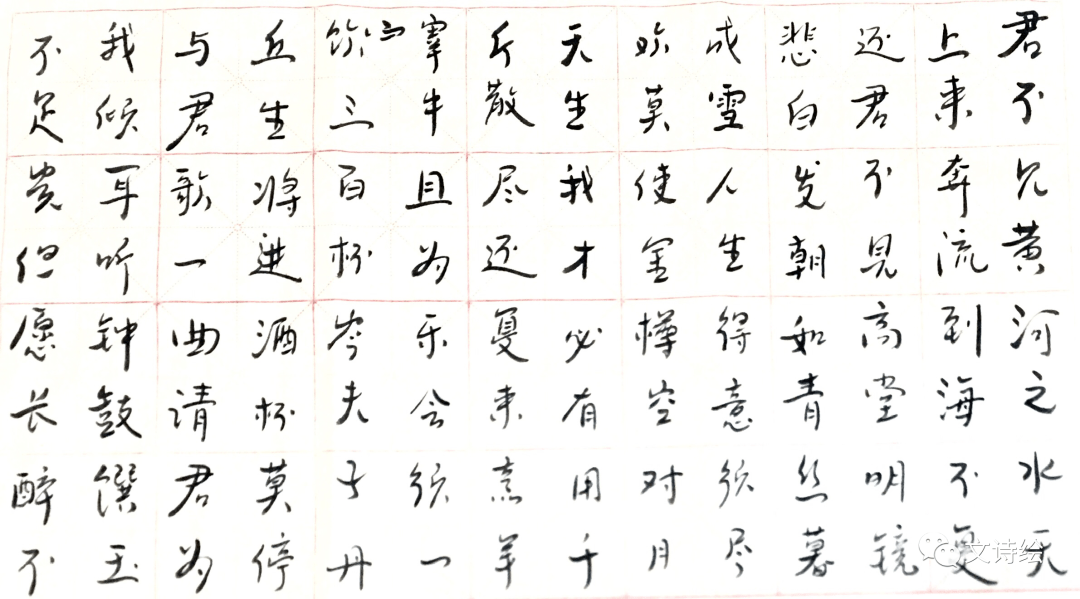 君不见黄河之水天
上来奔流到海不复
还君不见高堂明镜
悲白发朝如青丝暮
成雪人生得意须尽
欢莫使金樽空对月
天生我才必有用千
斤散尽还复来烹羊
宰牛且为乐会须一
饮三百杯岑夫子丹
丘生将进酒杯莫停
与君歌一曲请君为
我倾耳听钟鼓馔玉
不足贵但愿长醉不
文诗绘